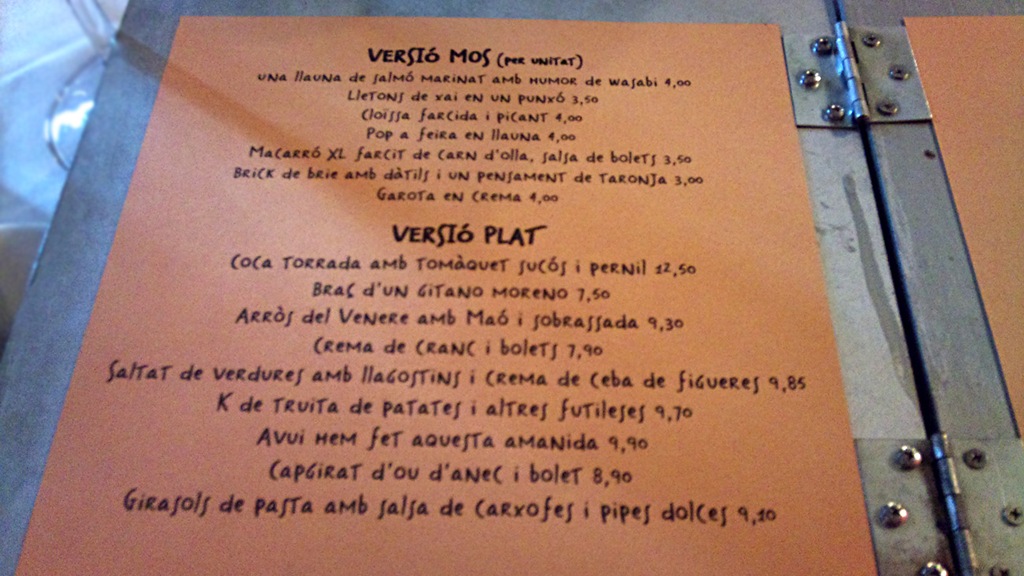 VERSIÓ MOS (PER UNITAT)
UNA llauna de salmó MARINAT amb HUMOR de wasabi 4,00
Lletons de xai EN UN PUNXÓ 3,50
Cloïssa farcida i picant 4,00
Pop a feira EN llauna 4,00
Macarró XL farcit de carn d'olla, salsa de bolets 3,50
Brick de brie amb dàtils i un pensament de taronja 3,00
Garota en crema 4,00
VERSIÓ PLAT
Coca torrada amb tomàquet sucós i pernil 12,50
Braç d'un gitano moreno 7,50
Arròs del Venere amb Maó i sobrassada 9,30
Crema de cranc i bolets 7,90
Saltat de verdures amb llagostins i crema de ceba de figueres 9,85
K de truita de patates i altres futileses 9,70
Avui hem fet aquesta amanida 9,90
Capgirat d'ou d'ànec i bolet 8,90
Girasols de pasta amb salsa de carxofes i pipes dolces 9,10